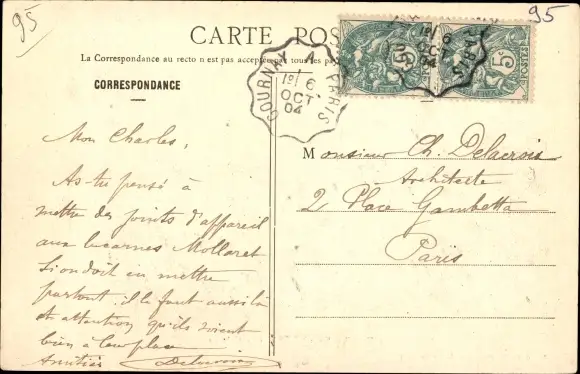 95
95
CARTE POS
La Correspondance au recto n est pas acceptée par tous les pa
CORRESPONDANCE
GOURNAY A PARIS
1º/ 6
OCT
04
PARIS
6
OCT
04
5c
5c
POSTES
Mon Charles,
As-tu pensé à
mettre des joints d'appareil
aux lucarnes Mollaret
Si on doit en mettre
partout, il le faut aussi là
et attention qu'ils soient
bien à leur place
Amitiés
Delacroix
Monsieur Ch. Delacroix
Architecte
2 Place Gambetta
Paris